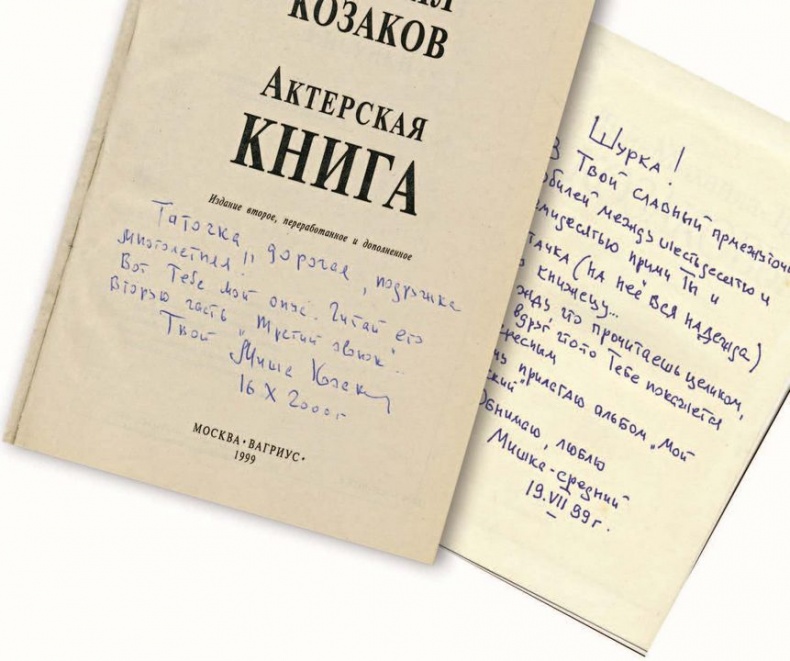 КОЗАКОВ
АКТЕРСКАЯ
КНИГА
Издание второе, переработанное и дополненное
Таточка, дорогая, подружка
многолетняя!
Вот Тебе мой опус. Читай его
вторую часть „Третий звонок"...
Твой Миша Козаков
16 X 2000 г
МОСКВА • ВАГРИУС •
1999
Шурка!
В Твой славный промежуточный
юбилей между шестьдесятью и
прими Ты и
(на неё вся надежда)
книжецу...
что прочитаешь целиком,
вдруг что-то Тебе покажется
прилагаю альбом „Мой
Обнимаю, люблю
Мишка-средний
19.VII 99 г.